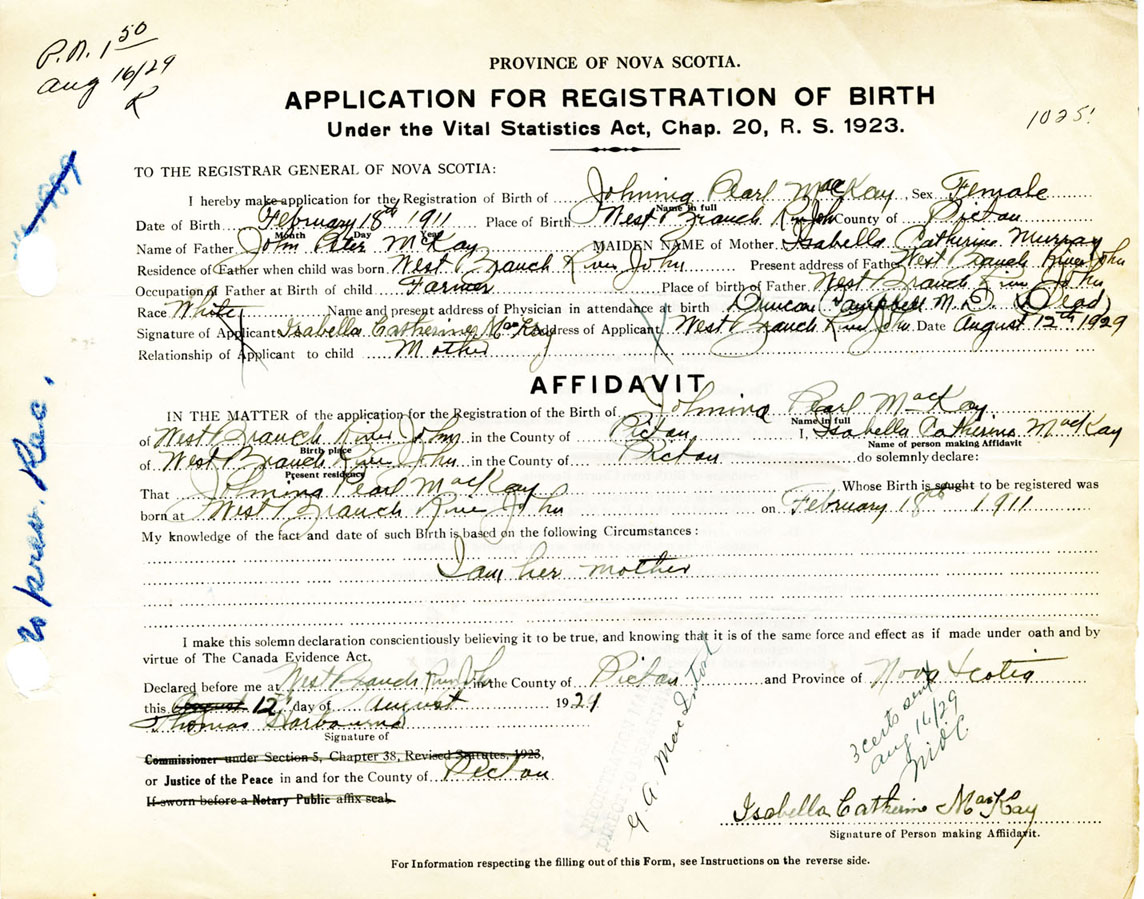 P.N. 1 50
Aug 16/29
R
PROVINCE OF NOVA SCOTIA.
APPLICATION FOR REGISTRATION OF BIRTH
Under the Vital Statistics Act, Chap. 20, R. S. 1923.
TO THE REGISTRAR GENERAL OF NOVA SCOTIA:
I hereby make application for the Registration of Birth of Johnina Pearl MacKay, Sex Female
Name in full
Date of Birth February 18th 1911 Place of Birth West Branch River John County of Pictou
Month Day Year
Name of Father John Peter McKay MAIDEN NAME of Mother Isabella Catherine Murray
Residence of Father when child was born West Branch River John Present address of Father West Branch River John
Occupation of Father at Birth of child Farmer Place of birth of Father West Branch River John
Race White Name and present address of Physician in attendance at birth Duncan Campbell M.D. (Dead)
Signature of Applicant Isabella Catherine MacKay Address of Applicant West Branch River John Date August 12th 1929
Relationship of Applicant to child Mother
AFFIDAVIT
IN THE MATTER of the application for the Registration of the Birth of Johnina Pearl MacKay
Name in full
of West Branch River John in the County of Pictou I, Isabella Catherine MacKay
Birth place Name of person making Affidavit
of West Branch River John in the County of Pictou do solemnly declare:
Present residency
That Johnina Pearl MacKay Whose Birth is sought to be registered was
born at West Branch River John on February 18th 1911
My knowledge of the fact and date of such Birth is based on the following Circumstances:
I am her mother
I make this solemn declaration conscientiously believing it to be true, and knowing that it is of the same force and effect as if made under oath and by
virtue of The Canada Evidence Act.
Declared before me at West Branch River John in the County of Pictou and Province of Nova Scotia
this August 12 day of August 1929
Thomas Harbourne
Signature of
Commissioner under Section 5, Chapter 38, Revised Statutes, 1923,
or Justice of the Peace in and for the County of Pictou
If sworn before a Notary Public affix seal.
3 certs sent
Aug 16/29
Isabella Catherine MacKay
Signature of Person making Affidavit.
For Information respecting the filling out of this Form, see Instructions on the reverse side.